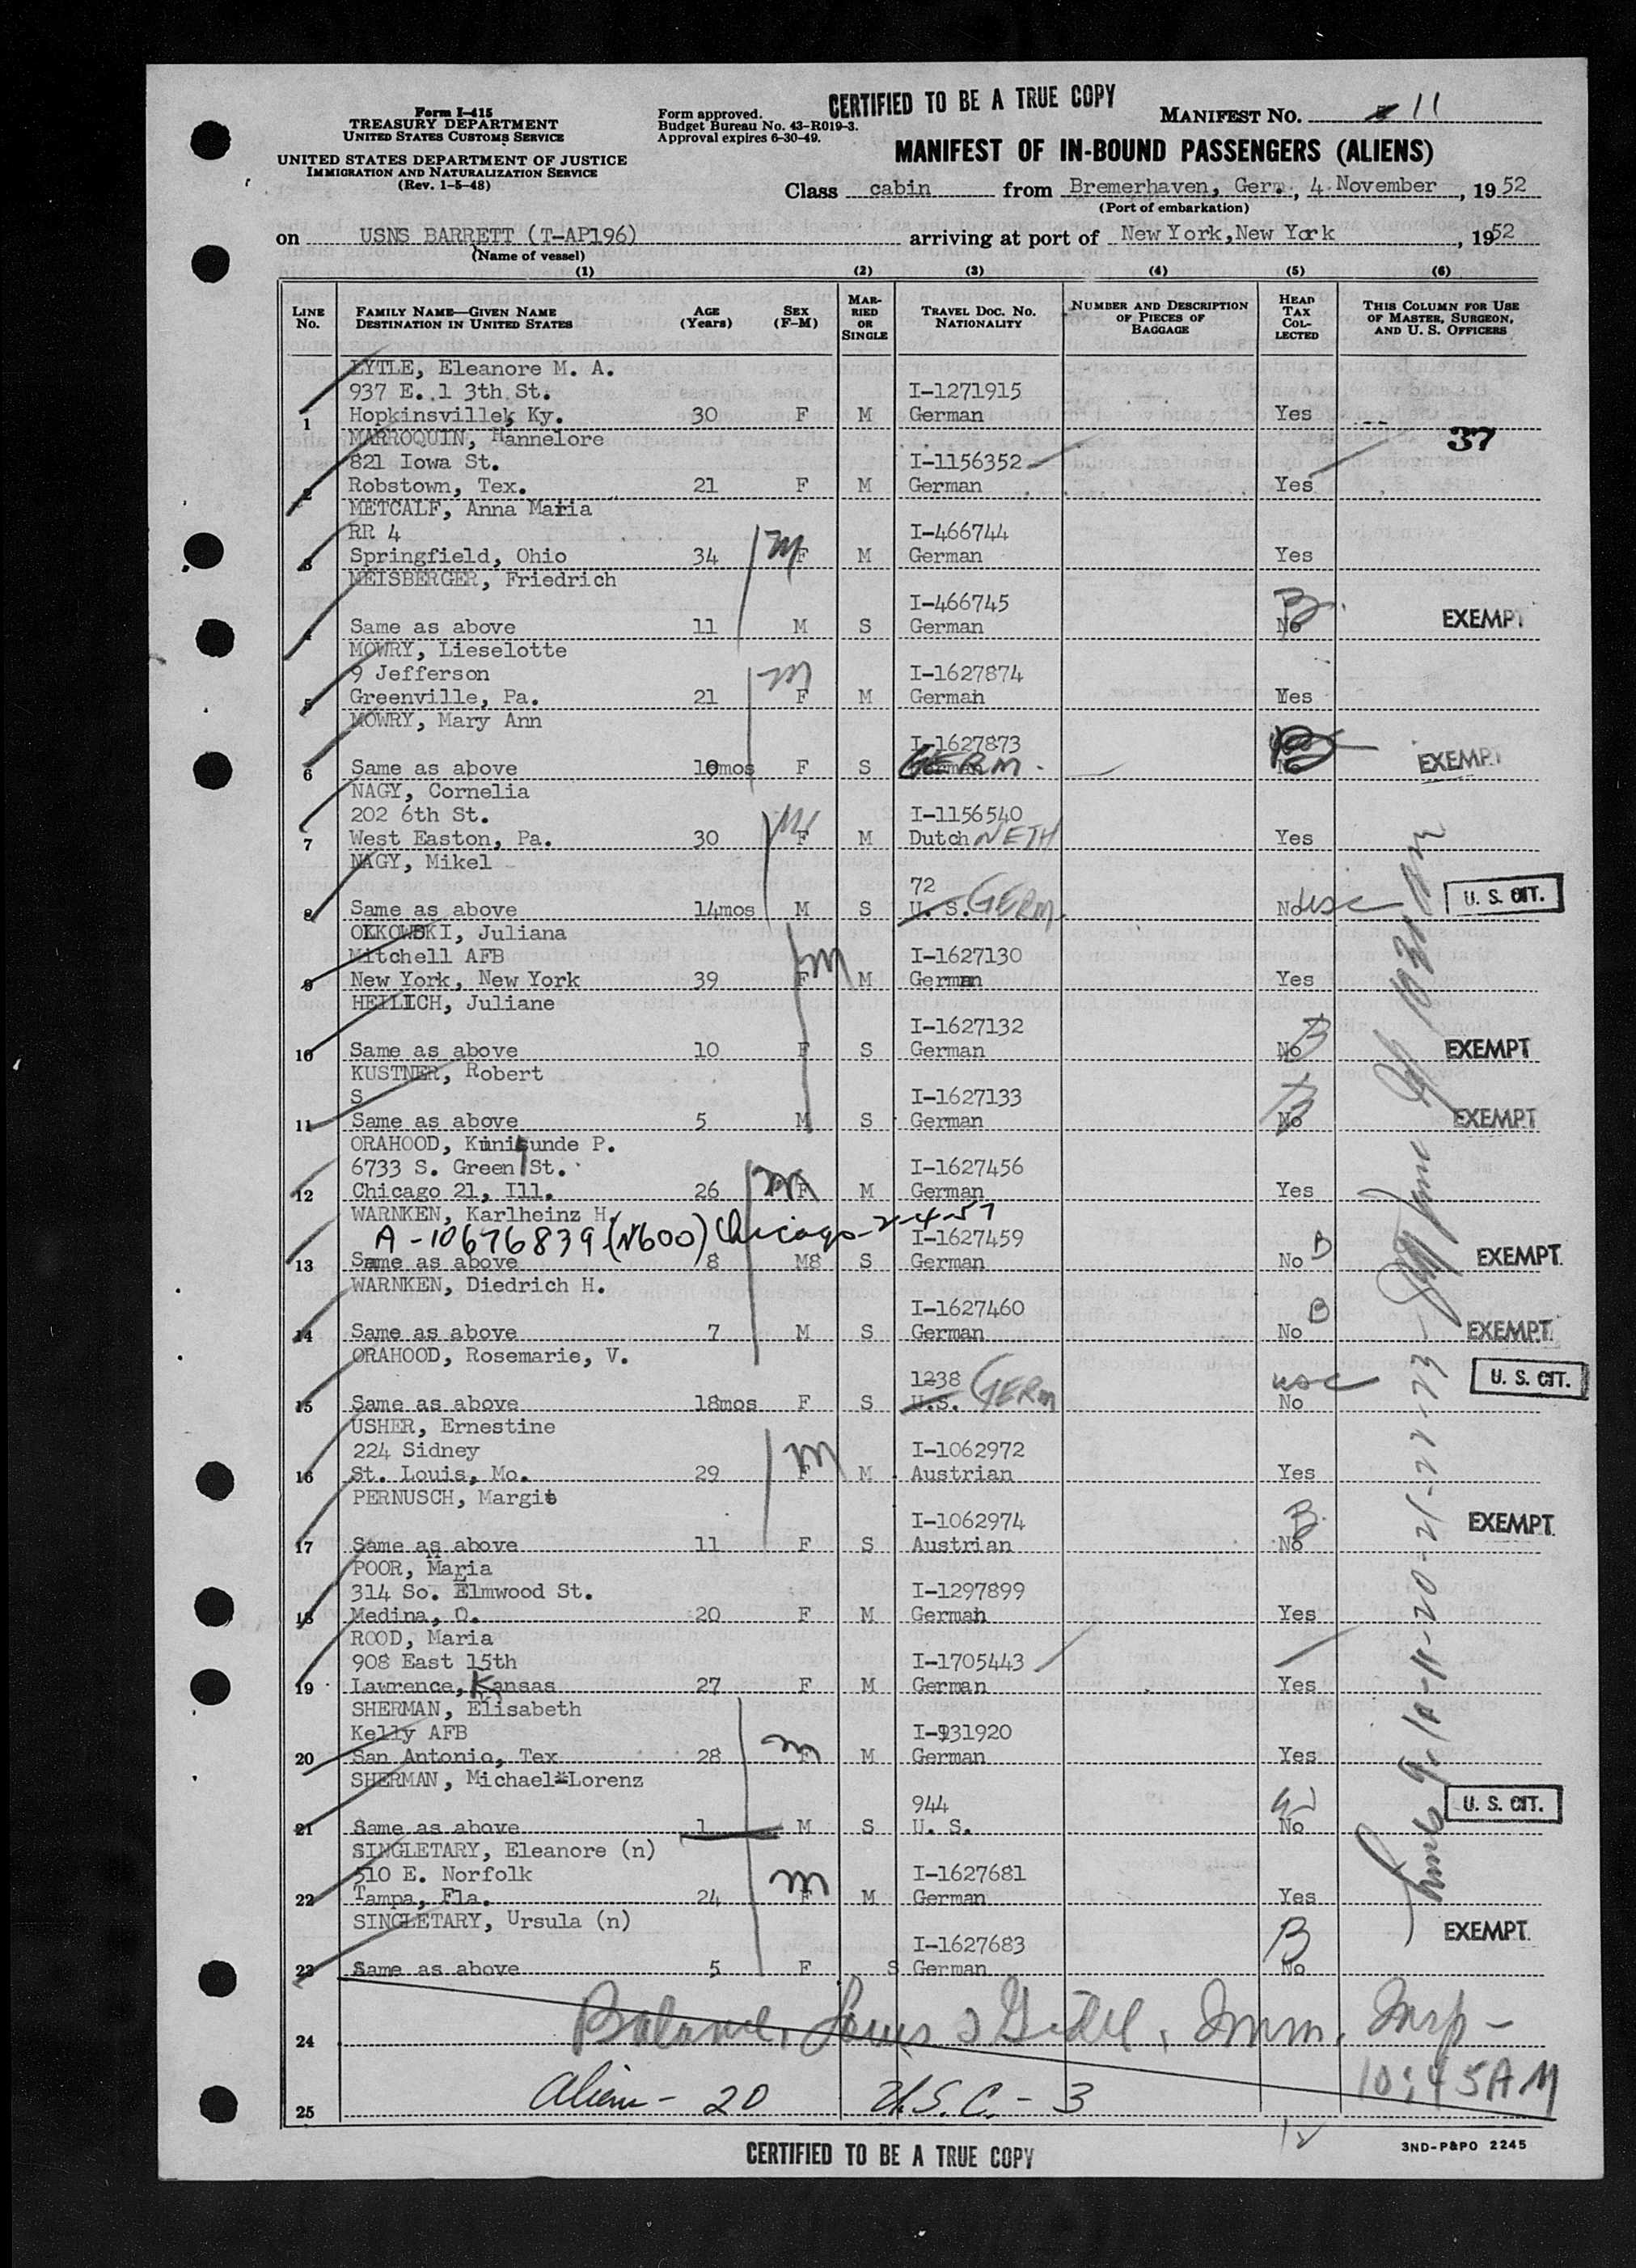 Form I-415
TREASURY DEPARTMENT
UNITED STATES CUSTOMS SERVICE
UNITED STATES DEPARTMENT OF JUSTICE
IMMIGRATION AND NATURALIZATION SERVICE
(Rev. 1-5-48)
Form approved.
Budget Bureau No. 43-R019-3.
Approval expires 6-30-49.
CERTIFIED TO BE A TRUE COPY
MANIFEST NO. 11
MANIFEST OF IN-BOUND PASSENGERS (ALIENS)
Class cabin from Bremerhaven, Germ., 4 November, 1952
(Port of embarkation)
on USNS BARRETT (T-AP196) arriving at port of New York, New York, 1952
(Name of vessel)
(1) (2) (3) (4) (5) (6)
LINE No. FAMILY NAME—GIVEN NAME DESTINATION IN UNITED STATES AGE (Years) SEX (F-M) MARRIED OR SINGLE TRAVEL DOC. NO. NATIONALITY NUMBER AND DESCRIPTION OF PIECES OF BAGGAGE HEAD TAX COLLECTED THIS COLUMN FOR USE OF MASTER, SURGEON, AND U. S. OFFICERS
LYTLE, Eleanore M. A.
937 E. 1 3th St. I-1271915
1 Hopkinsville, Ky. 30 F M German Yes
MARROQUIN, Hannelore 37
821 Iowa St. I-1156352
2 Robstown, Tex. 21 F M German Yes
METCALF, Anna Maria
RR 4 I-466744
3 Springfield, Ohio 34 F M German Yes
m
MEISBERGER, Friedrich
I-466745 B
4 Same as above 11 M S German No EXEMPT
MOWRY, Lieselotte
9 Jefferson I-1627874
5 Greenville, Pa. 21 F M German Yes
m
MOWRY, Mary Ann
I-1627873
6 Same as above 10mos F S GERM. No EXEMPT
NAGY, Cornelia
202 6th St. I-1156540
7 West Easton, Pa. 30 F M Dutch NETH Yes
m
NAGY, Mikel
72
8 Same as above 14mos M S U. S. GERM. No usc U. S. CIT.
OLKOWSKI, Juliana
Mitchell AFB I-1627130
9 New York, New York 39 F M German Yes
m
HEILICH, Juliane
I-1627132
10 Same as above 10 F S German No B EXEMPT
KUSTNER, Robert
S I-1627133
11 Same as above 5 M S German No B EXEMPT
ORAHOOD, Kunigunde P.
6733 S. Green St. I-1627456
12 Chicago 21, Ill. 26 F M German Yes
m
WARNKEN, Karlheinz H.
A-10676839 (N600) Chicago-2-4-57 I-1627459
13 Same as above 8 M8 S German No B EXEMPT
WARNKEN, Diedrich H.
I-1627460
14 Same as above 7 M S German No B EXEMPT
ORAHOOD, Rosemarie, V.
1238 usc
15 Same as above 18mos F S U.S. GERM No U. S. CIT.
USHER, Ernestine
224 Sidney I-1062972
16 St. Louis, Mo. 29 F M Austrian Yes
m
PERNUSCH, Margit
I-1062974 B
17 Same as above 11 F S Austrian No EXEMPT
POOR, Maria
314 So. Elmwood St. I-1297899
18 Medina, O. 20 F M German Yes
ROOD, Maria
908 East 15th I-1705443
19 Lawrence, Kansas 27 F M German Yes
SHERMAN, Elisabeth
Kelly AFB I-931920
20 San Antonio, Tex 28 F M German Yes
m
SHERMAN, Michael Lorenz
944
21 Same as above 1 M S U. S. No U. S. CIT.
SINGLETARY, Eleanore (n)
510 E. Norfolk I-1627681
22 Tampa, Fla. 24 F M German Yes
m
SINGLETARY, Ursula (n)
I-1627683 B
23 Same as above 5 F S German No EXEMPT
24 Balance, Imm. Insp-
10:45AM
25 Alien- 20 U.S.C. - 3
3ND-P&PO 2245
CERTIFIED TO BE A TRUE COPY